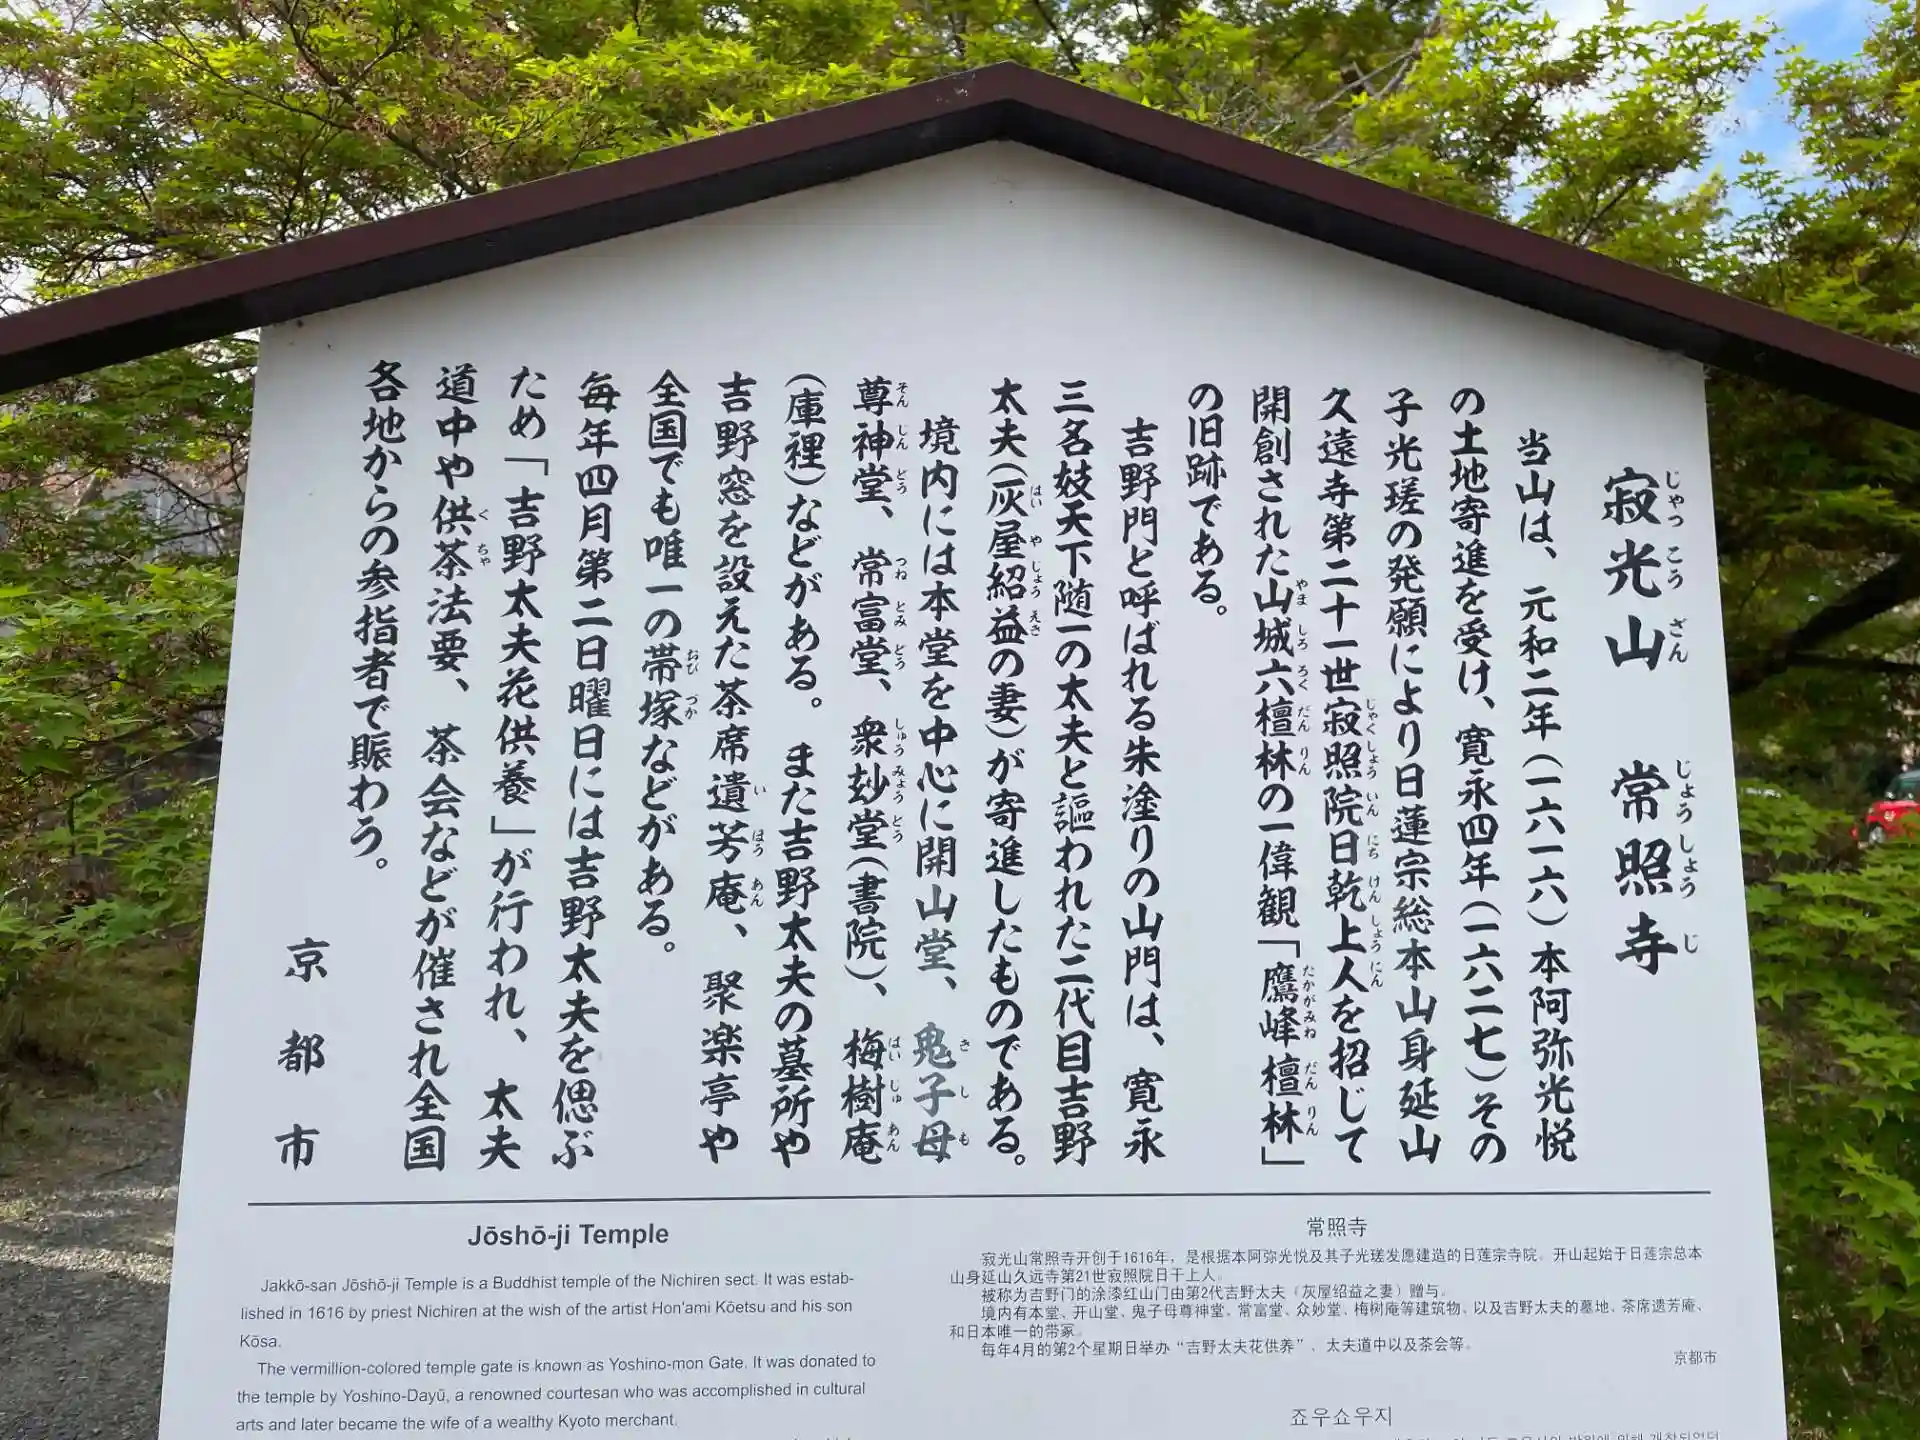 寂光山　常照寺
当山は、元和二年（一六一六）本阿弥光悦
の土地寄進を受け、寛永四年（一六二七）その
子光瑳の発願により日蓮宗総本山身延山
久遠寺第二十一世寂照院日乾上人を招じて
開創された山城六檀林の一偉観「鷹峰檀林」
の旧跡である。
吉野門と呼ばれる朱塗りの山門は、寛永
三名妓天下随一の太夫と謳われた二代目吉野
太夫（灰屋紹益の妻）が寄進したものである。
境内には本堂を中心に開山堂、鬼子母
尊神堂、常富堂、衆玅堂（書院）、梅樹庵
（庫裡）などがある。また吉野太夫の墓所や
吉野窓を設えた茶席遺芳庵、聚楽亭や
全国でも唯一の帯塚などがある。
毎年四月第二日曜日には吉野太夫を偲ぶ
ため「吉野太夫花供養」が行われ、太夫
道中や供茶法要、茶会などが催され全国
各地からの参指者で賑わう。
京都市
Jōshō-ji Temple
Jakkō-san Jōshō-ji Temple is a Buddhist temple of the Nichiren sect. It was estab-
lished in 1616 by priest Nichiren at the wish of the artist Hon'ami Kōetsu and his son
Kōsa.
The vermillion-colored temple gate is known as Yoshino-mon Gate. It was donated to
the temple by Yoshino-Dayū, a renowned courtesan who was accomplished in cultural
arts and later became the wife of a wealthy Kyoto merchant.
常照寺
寂光山常照寺开创于1616年，是根据本阿弥光悦及其子光瑳发愿建造的日莲宗寺院。开山起始于日莲宗总本
山身延山久远寺第21世寂照院日干上人。
被称为吉野门的涂漆红山门由第2代吉野太夫（灰屋绍益之妻）赠与。
境内有本堂、开山堂、鬼子母尊神堂、常富堂、众妙堂、梅树庵等建筑物、以及吉野太夫的墓地、茶席遗芳庵、
和日本唯一的带冢。
每年4月的第2个星期日举办“吉野太夫花供养”、太夫道中以及茶会等。
京都市
죠우쇼우지